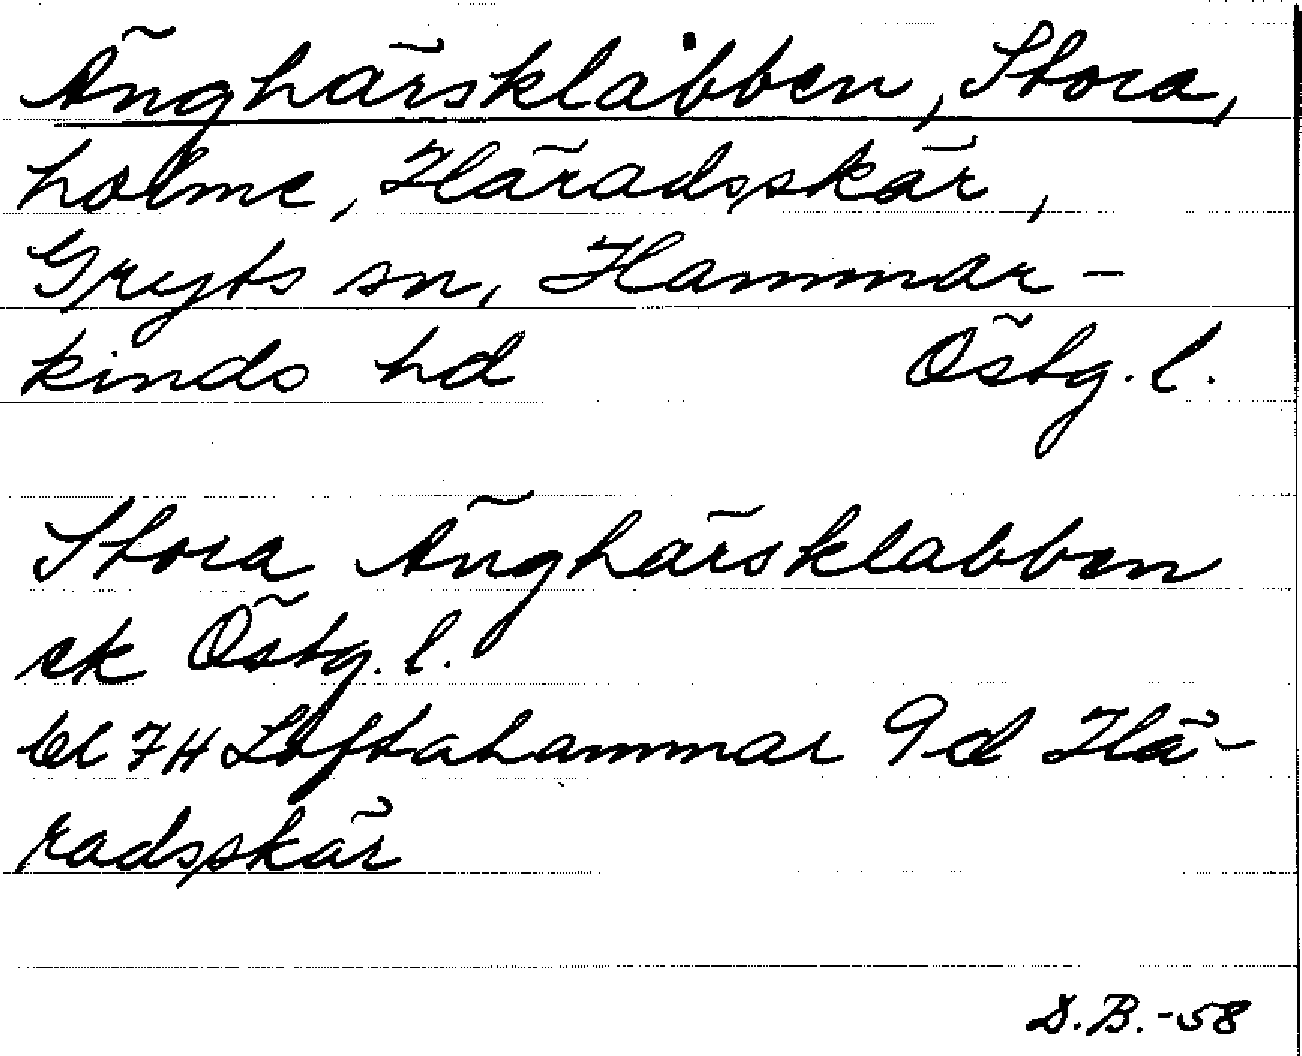 Änghärsklabben, Stora,
holme, Häradsskär,
Gryts sn, Hammar-
kinds hd Östg. l.
Stora Änghärsklabben
ek Östg. l.
bl 7H Loftahammar 9d Hä-
radsskär
D.B.-58